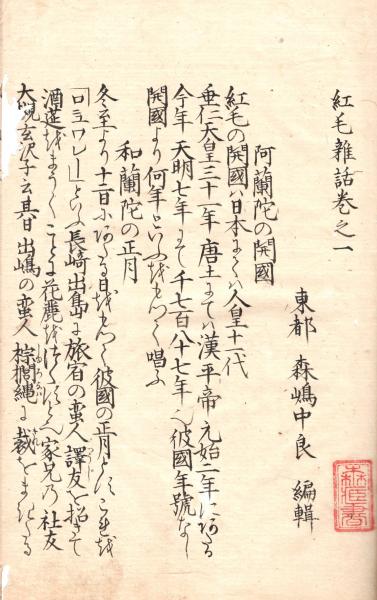 紅毛雜話巻之一
東都 森嶋中良 編輯
阿蘭陀の開國
紅毛の開國ハ日本にてハ人皇十一代
垂仁天皇三十一年唐土にてハ漢平帝元始二年にあたる
今年天明七年まて千七百八十七年也彼國年號なし
開國より何年といふをもつて唱ふ
和蘭陀の正月
冬至より十二日にあたる日をもつて彼國の正月とすこれを
といふ長崎出島に旅宿の蛮人譯友を招きて
酒莚をまうくことに花麗をつくすとそ家兄乃社友
大槻玄沢子云其日出嶋の蛮人棕櫚縄に裁をませたる